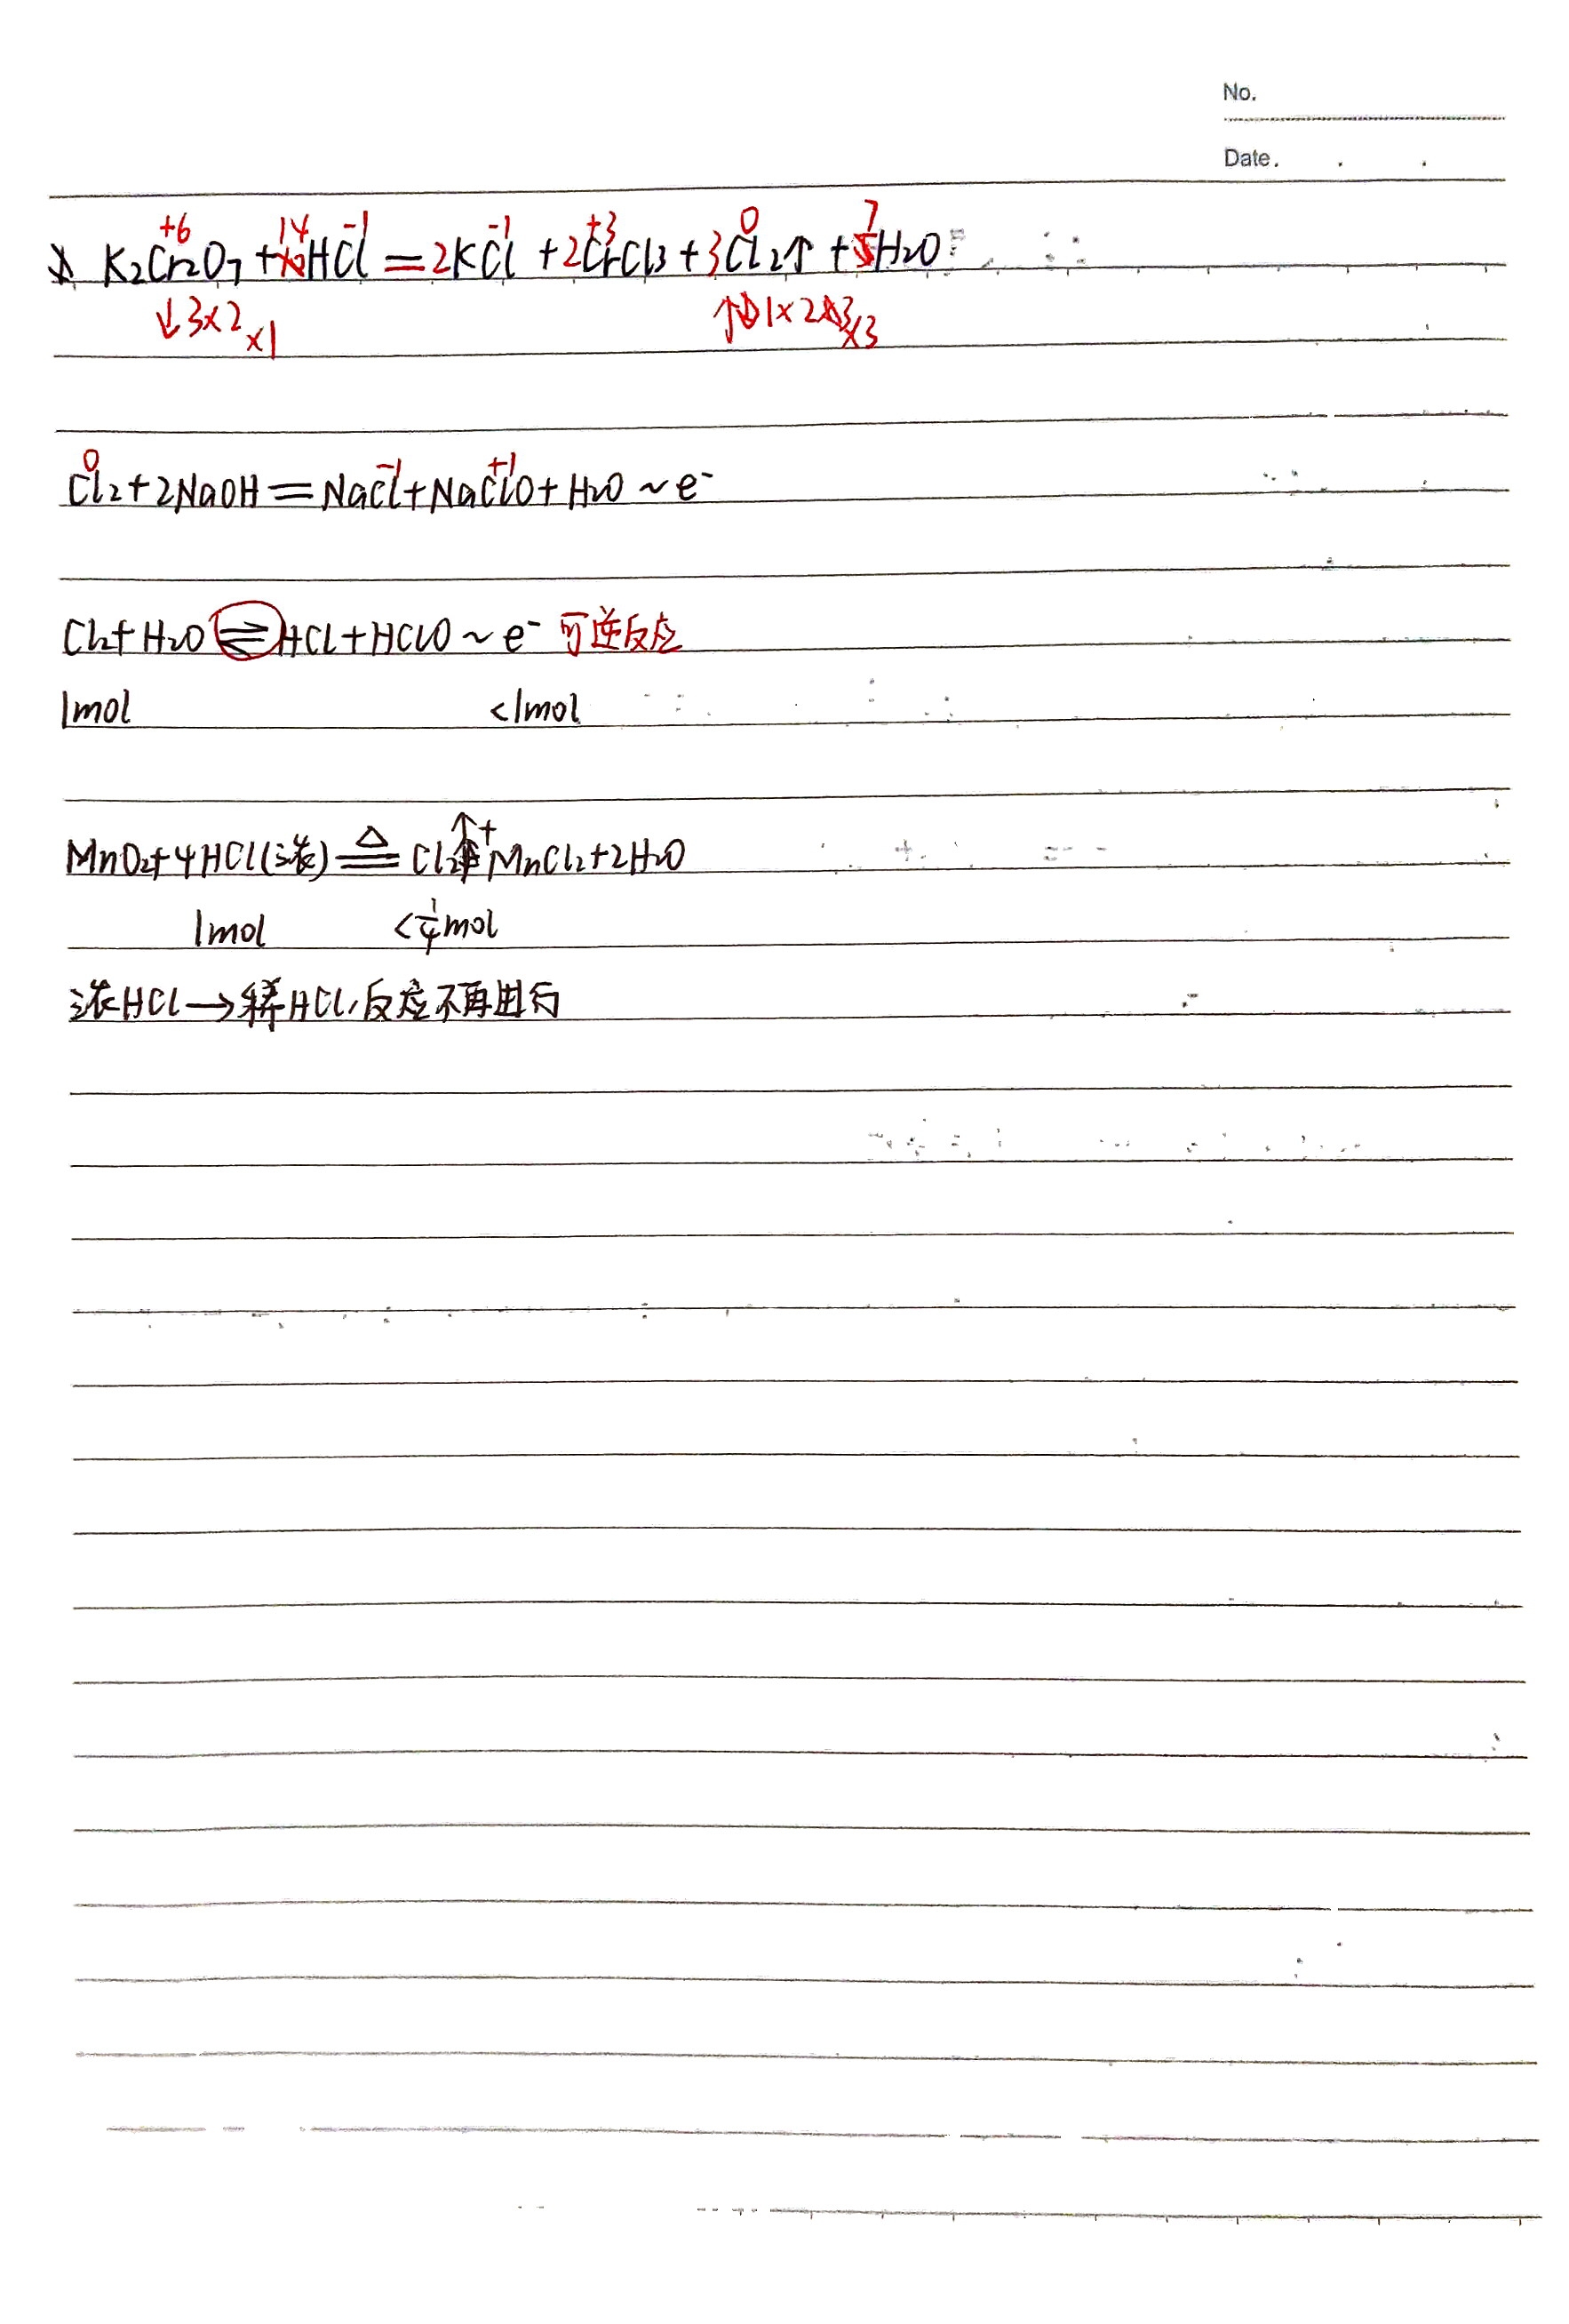 No.
Date. . .
+6 14 -1 -1 +3 0 7
K₂Cr₂O₇ + HCl = 2KCl + 2CrCl₃ + 3Cl₂↑ + H₂O
↓3×2 ×1 ↑1×2 ×3
0 -1 +1
Cl₂+2NaOH=NaCl+NaClO+H₂O~e⁻
Cl₂+H₂O⇌HCl+HClO~e⁻ 可逆反应
1mol <1mol
MnO₂+4HCl(浓)≜Cl₂↑+MnCl₂+2H₂O
1mol <1/4mol
浓HCl→稀HCl,反应不再进行